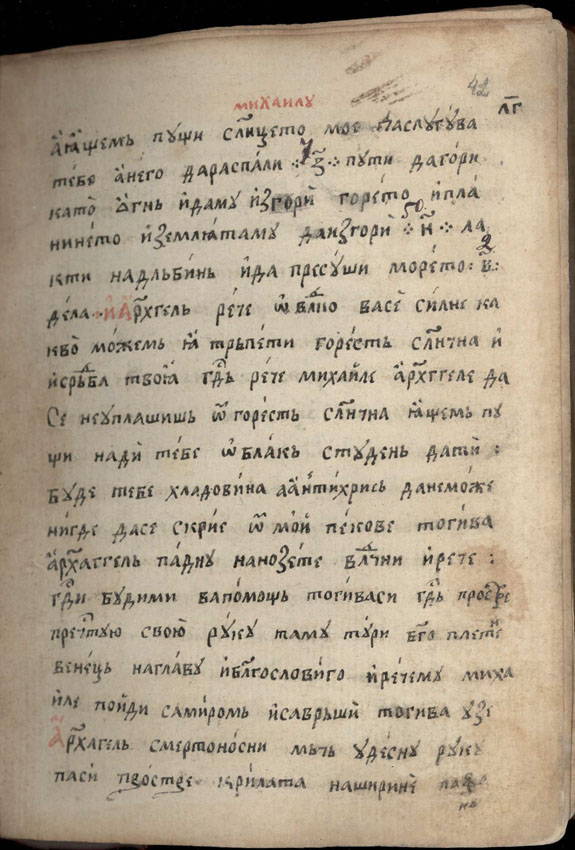 михаилу 42
лг
а҆ꙗ҆щемь пꙋщи сл҃нцето мое даслꙋгꙋва
тебе а҆него дараспали ·:· з҃ ·:· пꙋти дагори
като̀ ѻ҆гнь и҆дамꙋ и҆згорѝ горе́то и҆пла
нинѐто и҆землꙗ҆тамꙋ даизгорѝ ·:· н҃ ·:· ла
50 2
кти надльбинь и҆да пресꙋши море́то : в҃ :
дела · и҆ а҆рх҃гель рѐче ѡ҆ влⷣко васе силне ка
кво̀ мо́жемь ꙗ҆ трьпети горесть сл҃нчна и҆
и҆срьⷣба твоꙗ̀ гдⷭ҇ь рече михаи́ле а҆рх҃ггеле да
се неꙋплашишь ѿ горесть сл҃нчна ꙗ҆щемь пꙋ
щи надѝ тѐбе ѡ҆блакь стꙋдень датѝ :
бꙋде тебе хладовѝна аа҆нтихрись данемо́же
нигде дасе скрие ѿ мои̑ пекове тогива
а҆рх҃аггель па́днꙋ нанозѐте влⷣчни и҆рече :
гдⷭ҇и бꙋдими вапомощь тогиваси гдⷭ҇ь простре
преч҃тꙋю своѝ рꙋ́кꙋ тамꙋ тꙋри бг҃о плетѐн
венѐць наглавꙋ и҆бл҃гословиго и҆речемꙋ миха
и҆ле пои̑ди самиромь и҆саврьшѝ тогива ꙋзе
а҆рх҃агель смертоно́сни мьчь ꙋдеснꙋ рꙋкꙋ
паси простре крилата наширинѐ